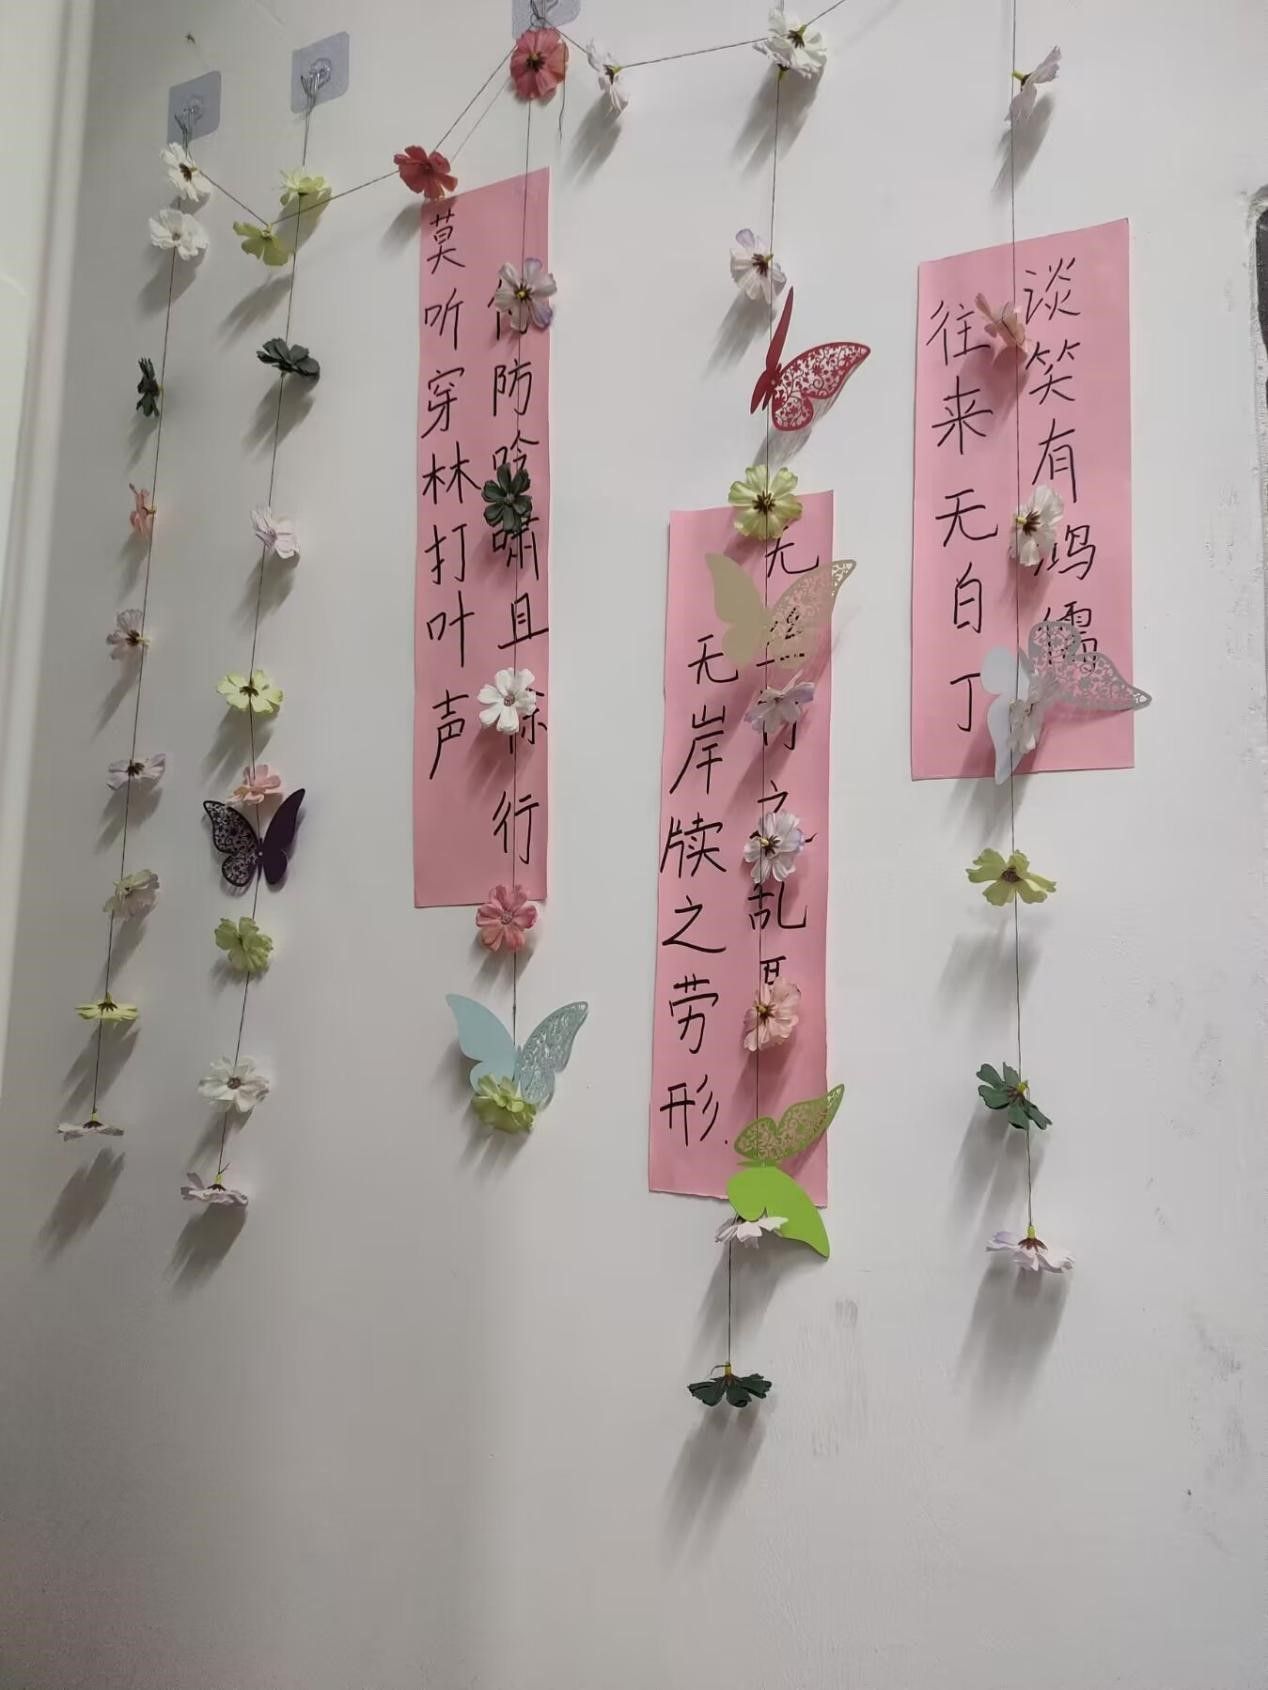 莫听穿林打叶声
何防吟啸且徐行
无丝竹之乱耳
无岸牍之劳形.
谈笑有鸿儒
往来无白丁